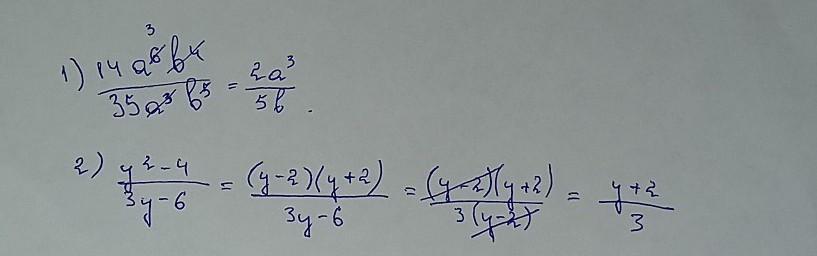 1) 14a⁶b⁴ / 35a³b⁵ = 2a³ / 5b .
2) y²-4 / 3y-6 = (y-2)(y+2) / 3y-6 = (y-2)(y+2) / 3(y-2) = y+2 / 3